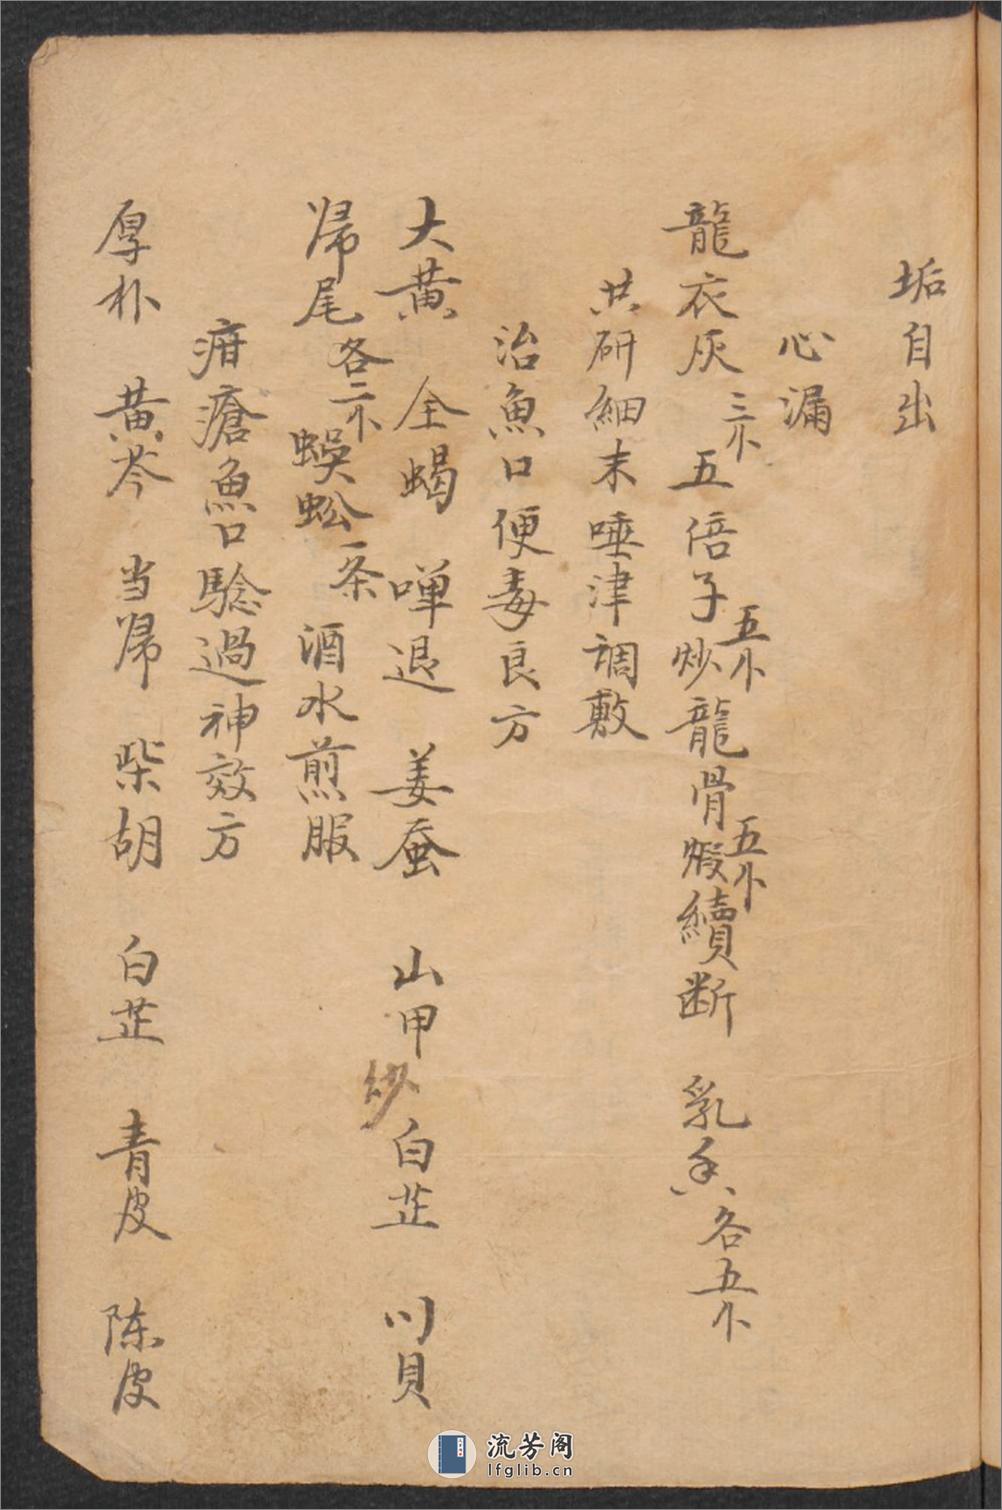 垢自出
心漏
龍衣灰三卜五倍子炒五卜龍骨煅五卜續断 乳香各五卜
共研細末唾津調敷
治魚口便毒良方
大黄 全蝎 嘽退 姜蚕 山甲炒白芷 川貝
归尾各二卜蜈蚣一条 酒水煎服
疳瘡魚口騐過神效方
厚朴 黄芩 当归 柴胡 白芷 青皮 陈皮
流芳阁
lfglib.cn